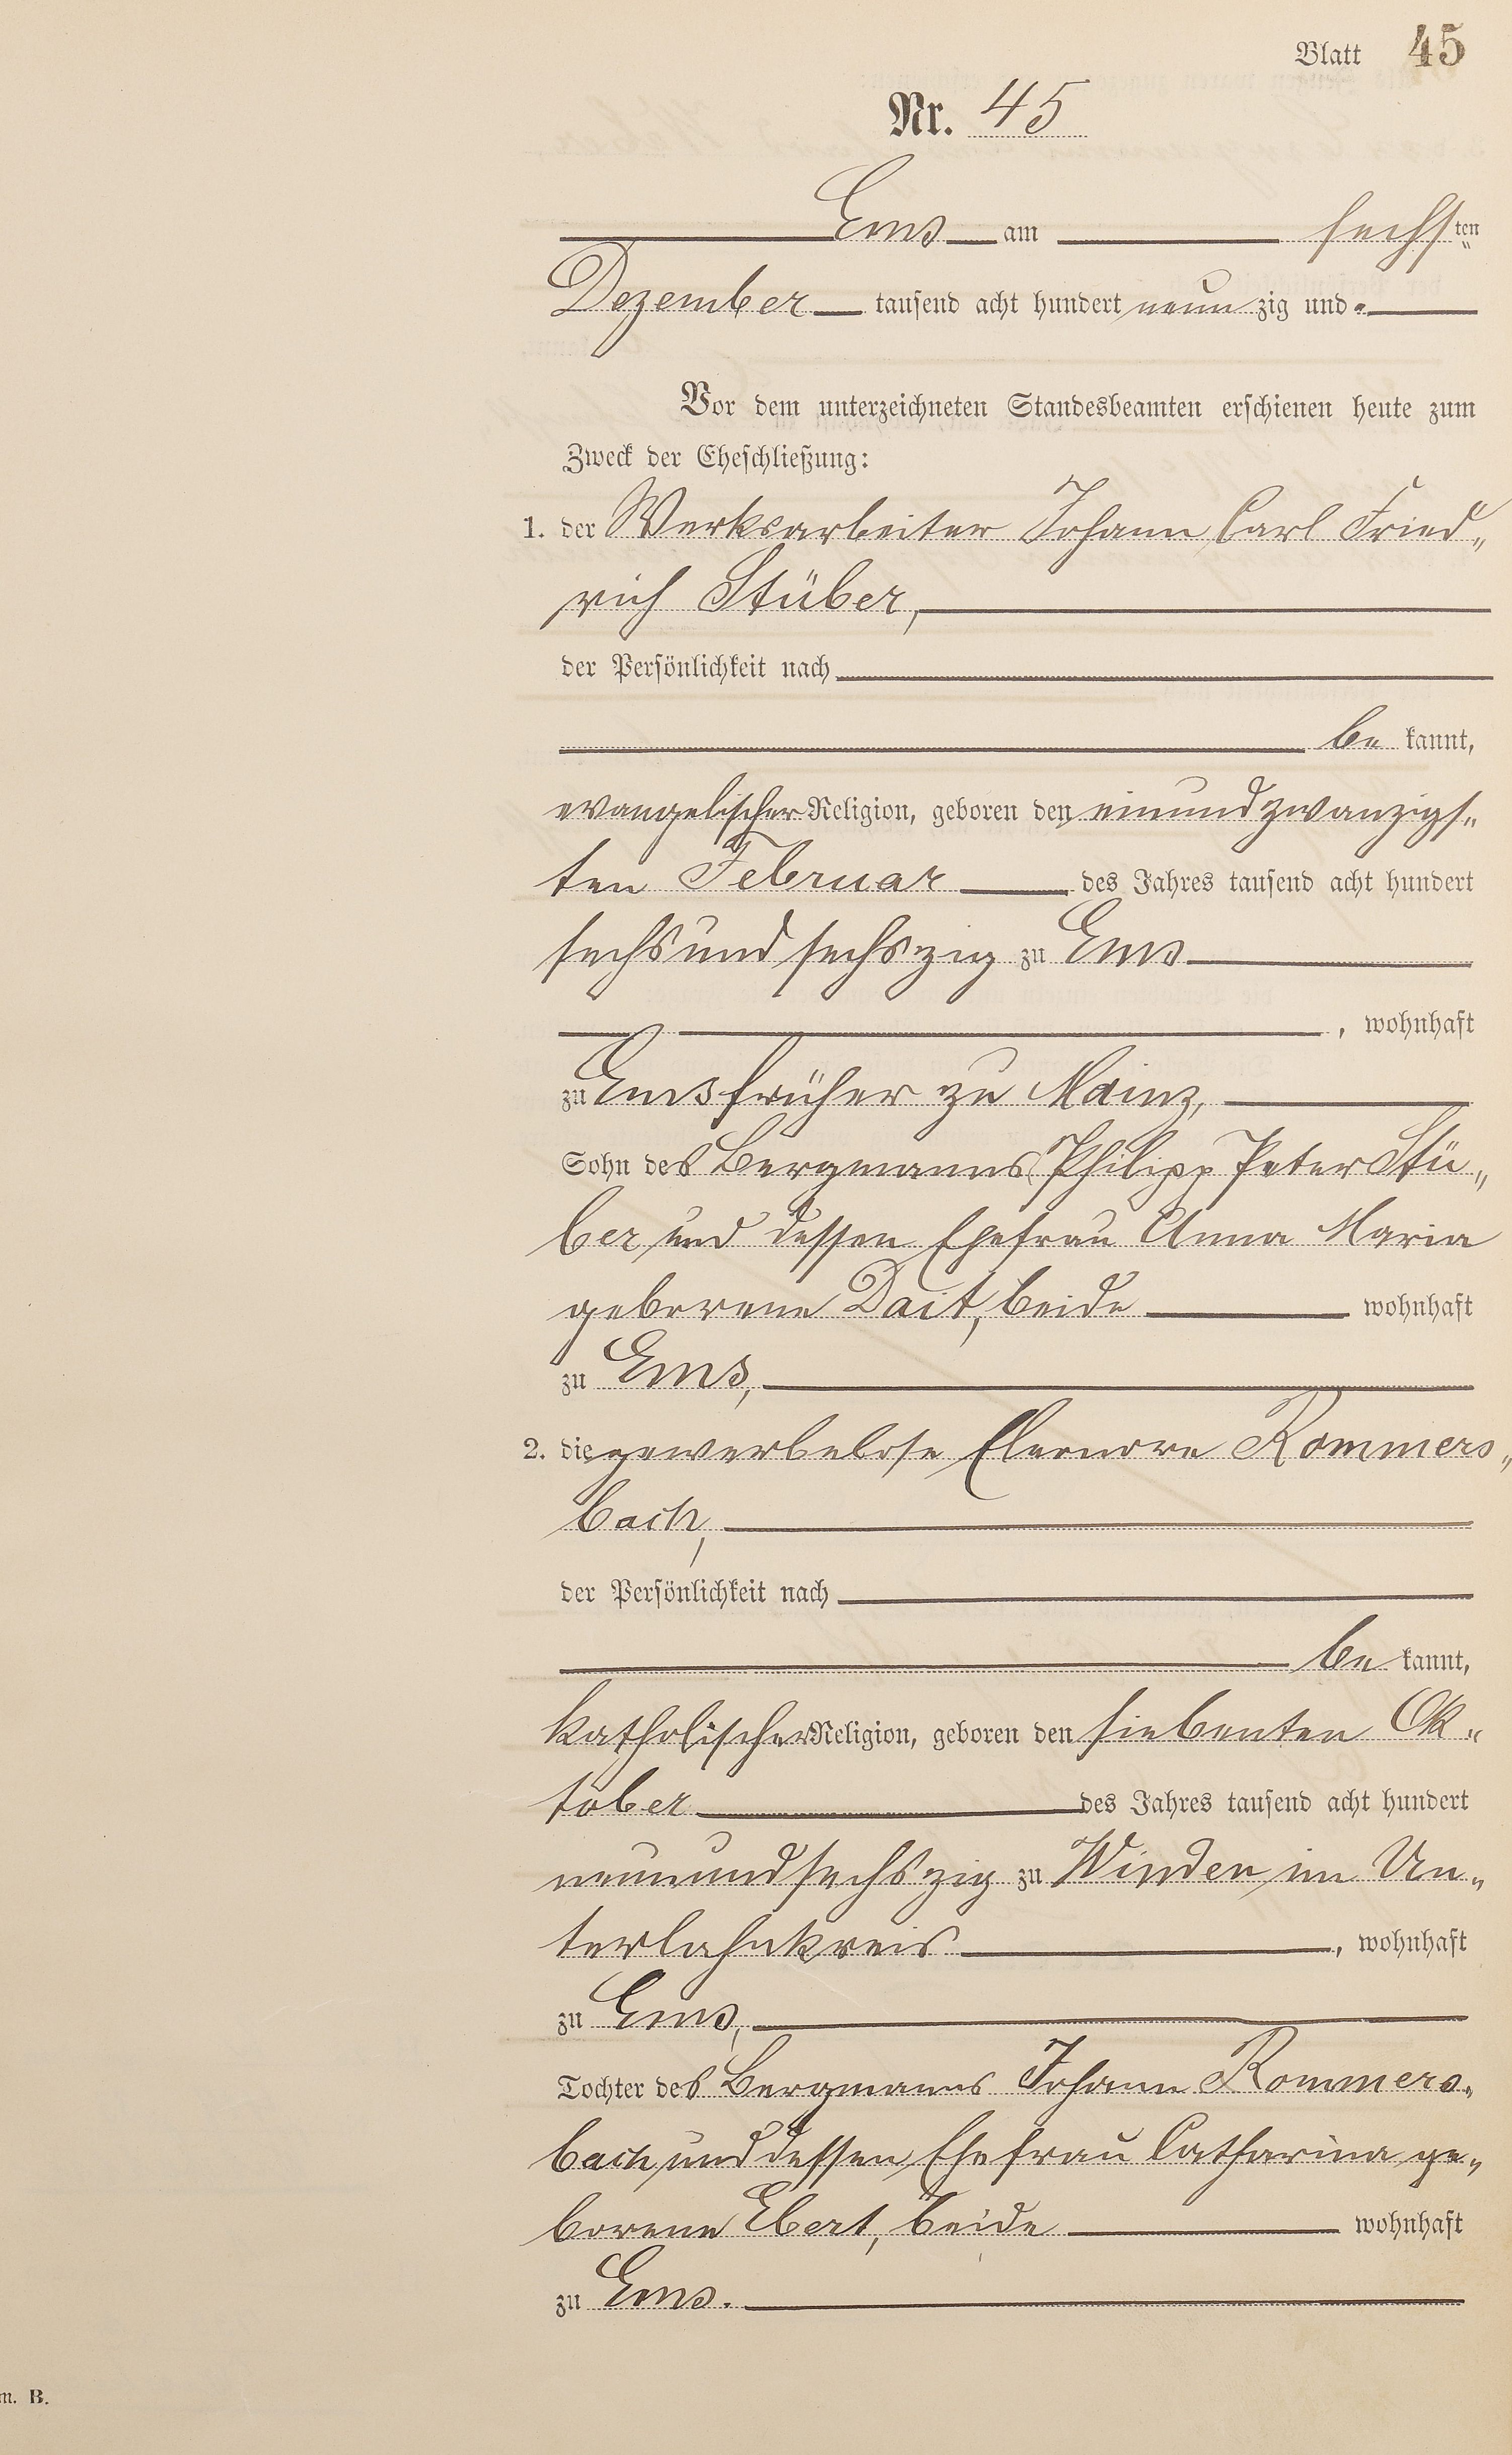 Blatt 45
Nr. 45
Ems am sechsten
Dezember tausend acht hundert neunzig und
Vor dem unterzeichneten Standesbeamten erschienen heute zum
Zweck der Eheschließung:
1. der Werksarbeiter Johann Carl Fried„
rich Stüber,
der Persönlichkeit nach
bekannt,
evangelischer Religion, geboren den einundzwanzigs„
ten Februar des Jahres tausend acht hundert
sechsundsechszig zu Ems
, wohnhaft
zu Ems früher zu Mainz,
Sohn des Bergmanns Philipp Peter Stü„
ber und dessen Ehefrau Anna Maria
geborene Dait, beide wohnhaft
zu Ems,
2. die gewerbelose Eleonore Rommers„
bach,
der Persönlichkeit nach
bekannt,
katholischer Religion, geboren den siebenten Ok„
tober des Jahres tausend acht hundert
neunundsechszig zu Winden im Un„
terlahnkreis, wohnhaft
zu Ems,
Tochter des Bergmanns Johann Rommers„
bach und dessen Ehefrau Catharina ge„
borene Ebert, beide wohnhaft
zu Ems.
m. B.